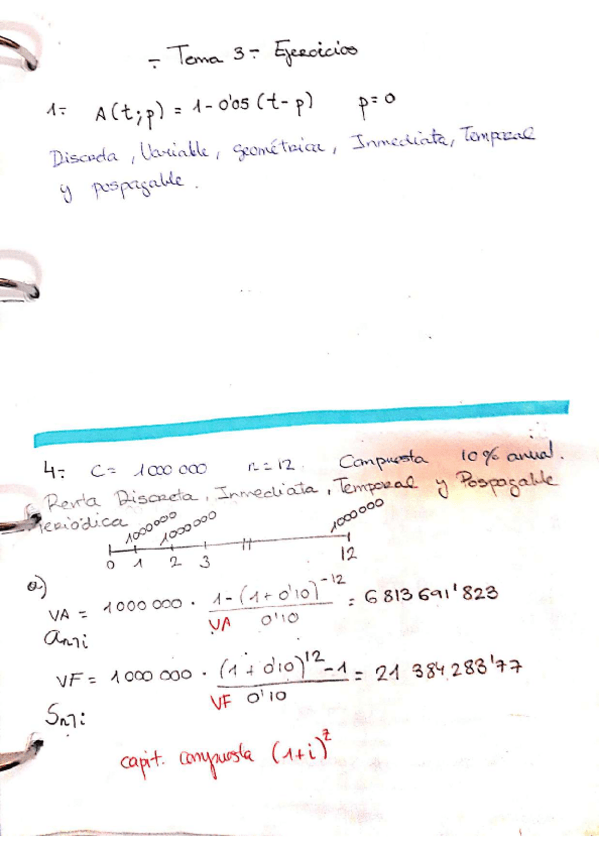 ÷ Tema 3 ÷ Ejercicios
1÷ A(t;p) = 1-0'05 (t-p) p=0
Discreta, Variable, geométrica, Inmediata, Temporal
y pospagable.
4÷ C= 1000 000 n=12 Compuesta 10% anual.
Renta Discreta, Inmediata, Temporal y Pospagable
Periódica
1000000 1000000 1000000
0 1 2 3 12
a)
VA = 1000 000 · 1-(1+0'10)^-12 / 0'10 = 6 813 691'823
VA
an┐i
VF = 1000 000 · (1+0'10)^12 -1 / 0'10 = 21 384 283'77
VF
Sn┐i
capit. compuesta (1+i)^z